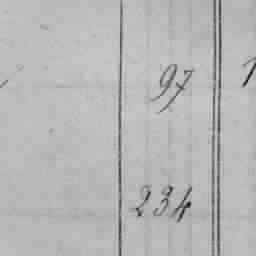 97
234